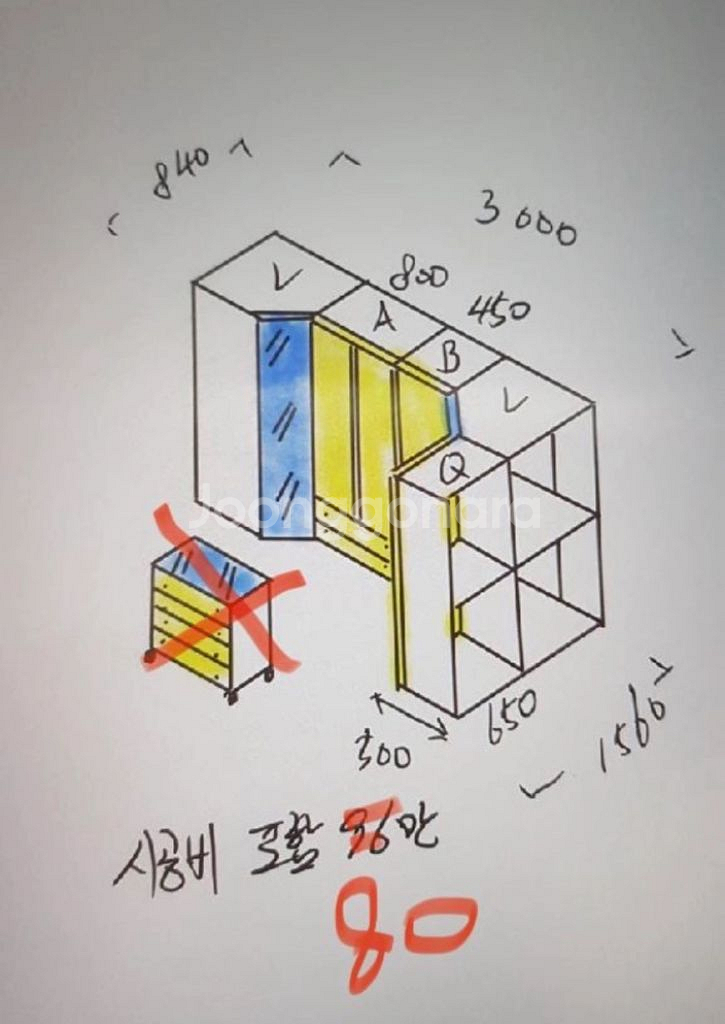 840
3000
800
450
V
A
B
V
Q
Joonggonara
650
300
1560
시공비 포함 만
80